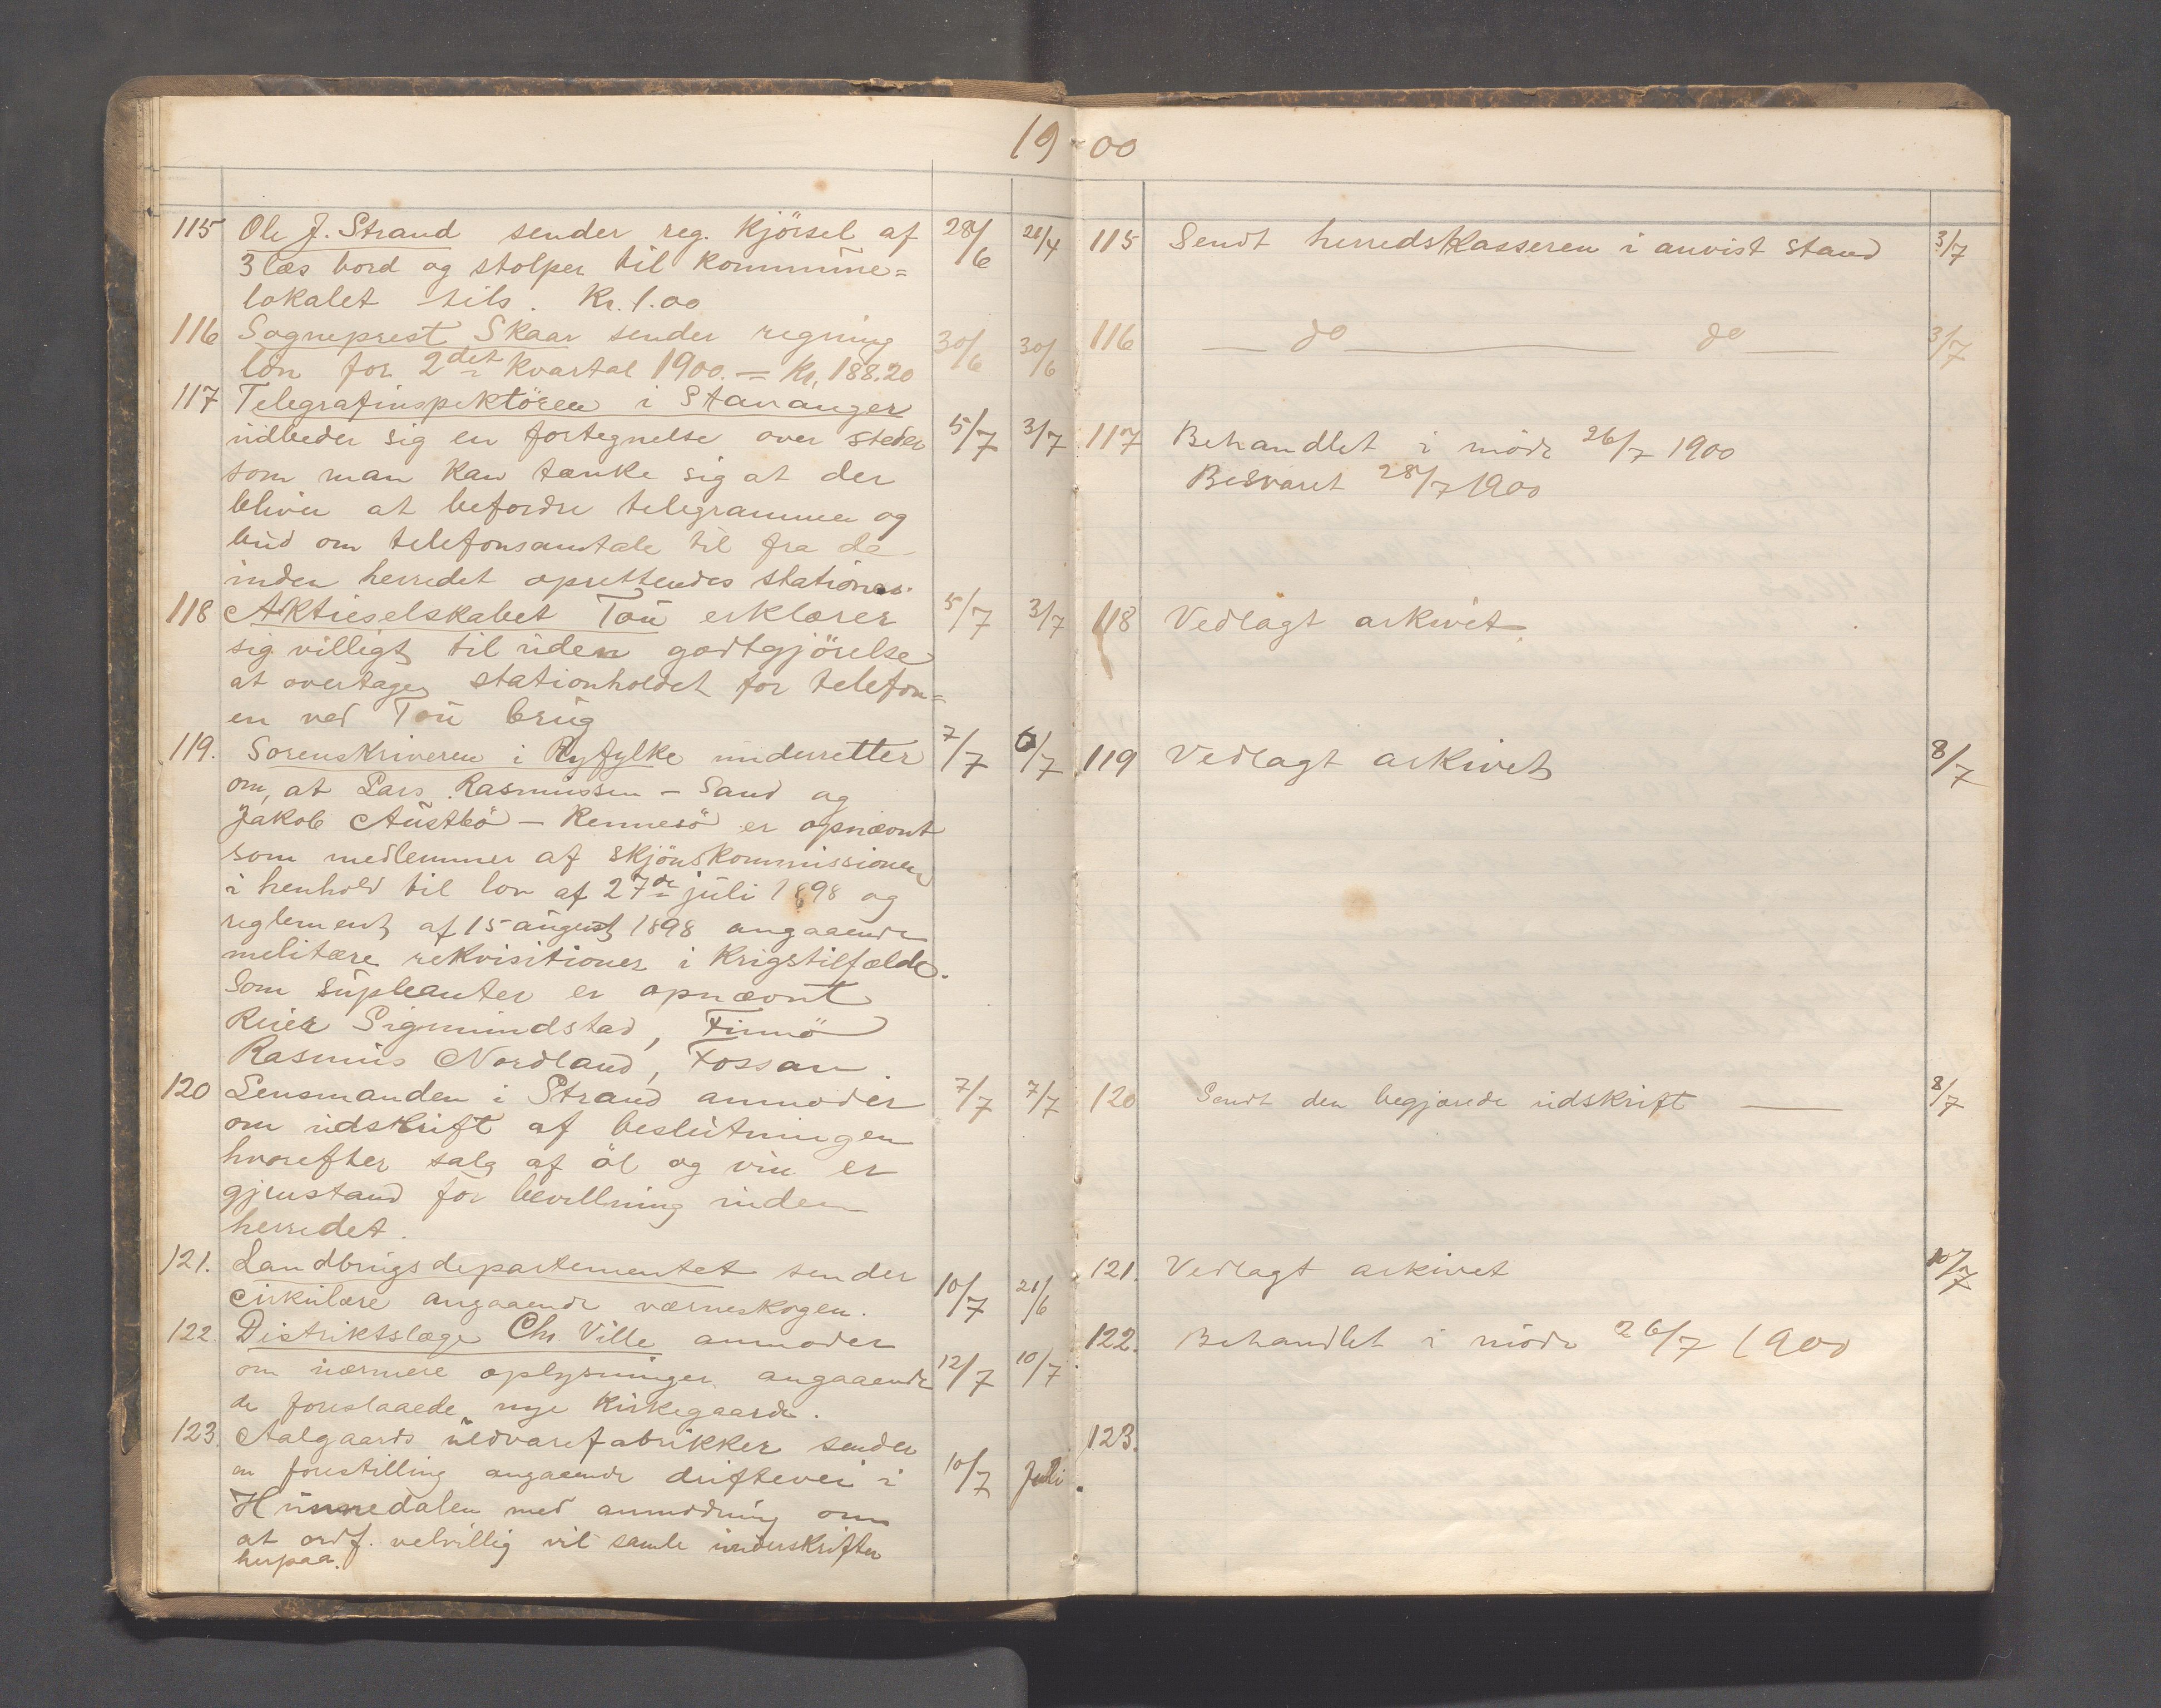 19 00
115 Ole J. Strand sender reg. kjörsel af 28/6 21/4
3 læs bord og stolper til kommune=
lokalet tils. Kr. 1.00
116 Sogneprest Skaar sender regning 30/6 30/6
lön for 2det kvartal 1900. = Kr. 188.20
117 Telegrafinspektören i Stavanger
udbeder sig en fortegnelse over steder 5/7 3/7
som man kan tænke sig at der
bliver at befordre telegrammer og
bud om telefonsamtale til fra de
inden herredet oprettendes stationer.
118 Aktieselskabet Tou erklærer 5/7 3/7
sig villigt til uden godtgjörelse
at overtage stationholdet for telefon=
en ved Tou brug
119. Sorenskriveren i Ryfylke underretter 7/7 6/7
om, at Lars Rasmussen - Sand og
Jakob Austbö - Rennesö er opnævnt
som medlemmer af skjönskommissionen
i henhold til lov af 27de juli 1898 og
reglement af 15 august 1898 angaaende
militære rekvisitioner i krigstilfælde.
Som supleanter er opnævnt
Reier Sigmundstad, Finnö
Rasmus Nordland, Fossan.
120 Lensmanden i Strand anmoder 7/7 7/7
om udskrift af beslutningen
hvorefter salg af öl og vin er
gjenstand for bevillning inden
herredet.
121. Landbrugsdepartementet sender 10/7 21/6
cirkulære angaaende værneskogen.
122. Distriktslæge Chr. Ville anmoder
om nærmere oplysninger angaaende 12/7 10/7
de foreslaaede nye kirkegaarde.
123. Aalgaards uldvarefabrikker sender
en forestilling angaaende driftevei i 10/7 Juli
Hunnedalen med anmodning om
at ordf. velvillig vil samle underskrifter
herpaa.
115 Sendt herredskasseren i anvist stand 3/7
116 — do — do — 3/7
117 Behandlet i möde 26/7 1900
Besvaret 28/7 1900
118 Vedlagt arkivet.
119 Vedlagt arkivet 8/7
120 Sendt den begjærede udskrift — 8/7
121. Vedlagt arkivet 10/7
122. Behandlet i möde 26/7 1900
123.